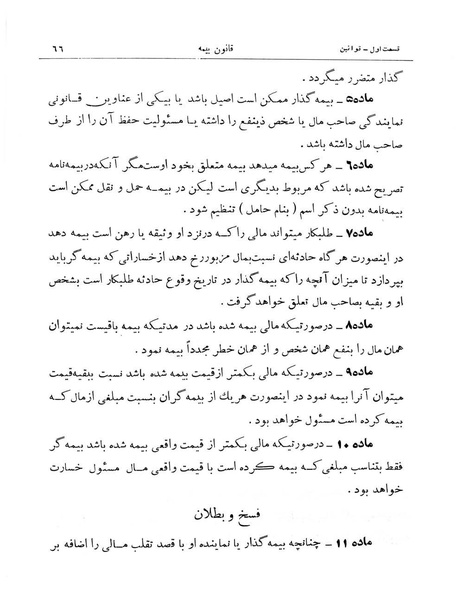 قسمت اول - قوانین قانون بیمه ۶۶
گذار متضرر میگردد .
ماده۵ - بیمه گذار ممکن است اصیل باشد یا بیکی از عناوین قانونی
نمایندگی صاحب مال یا شخص ذینفع را داشته یا مسئولیت حفظ آن را از طرف
صاحب مال داشته باشد .
ماده۶ - هر کس بیمه میدهد بیمه متعلق بخود اوست مگر آنکه در بیمه‌نامه
تصریح شده باشد که مربوط بدیگری است لیکن در بیمه حمل و نقل ممکن است
بیمه‌نامه بدون ذکر اسم ( بنام حامل ) تنظیم شود .
ماده۷ - طلبکار میتواند مالی را که در نزد او وثیقه یا رهن است بیمه دهد
در اینصورت هر گاه حادثه‌ای نسبت بمال مزبور رخ دهد از خساراتی که بیمه گر باید
بپردازد تا میزان آنچه را که بیمه گذار در تاریخ وقوع حادثه طلبکار است بشخص
او و بقیه بصاحب مال تعلق خواهد گرفت .
ماده۸ - در صورتیکه مالی بیمه شده باشد در مدتیکه بیمه باقیست نمیتوان
همان مال را بنفع همان شخص و از همان خطر مجدداً بیمه نمود .
ماده۹ - در صورتیکه مالی بکمتر از قیمت بیمه شده باشد نسبت ببقیه قیمت
میتوان آنرا بیمه نمود در اینصورت هر یك از بیمه گران بنسبت مبلغی از مال که
بیمه کرده است مسئول خواهد بود .
ماده ۱۰ - در صورتیکه مالی بکمتر از قیمت واقعی بیمه شده باشد بیمه گر
فقط بتناسب مبلغی که بیمه کرده است با قیمت واقعی مال مسئول خسارت
خواهد بود .
فسخ و بطلان
ماده ۱۱ - چنانچه بیمه گذار یا نماینده او با قصد تقلب مالی را اضافه بر